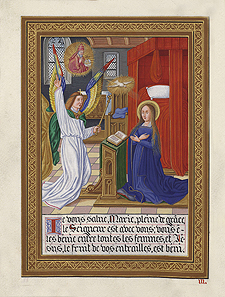 Je vous salue, Marie, pleine de grâce,
le Seigneur est avec vous; vous ê-
tes bénie entre toutes les femmes, et Jé-
sus, le fruit de vos entrailles, est béni.
III.